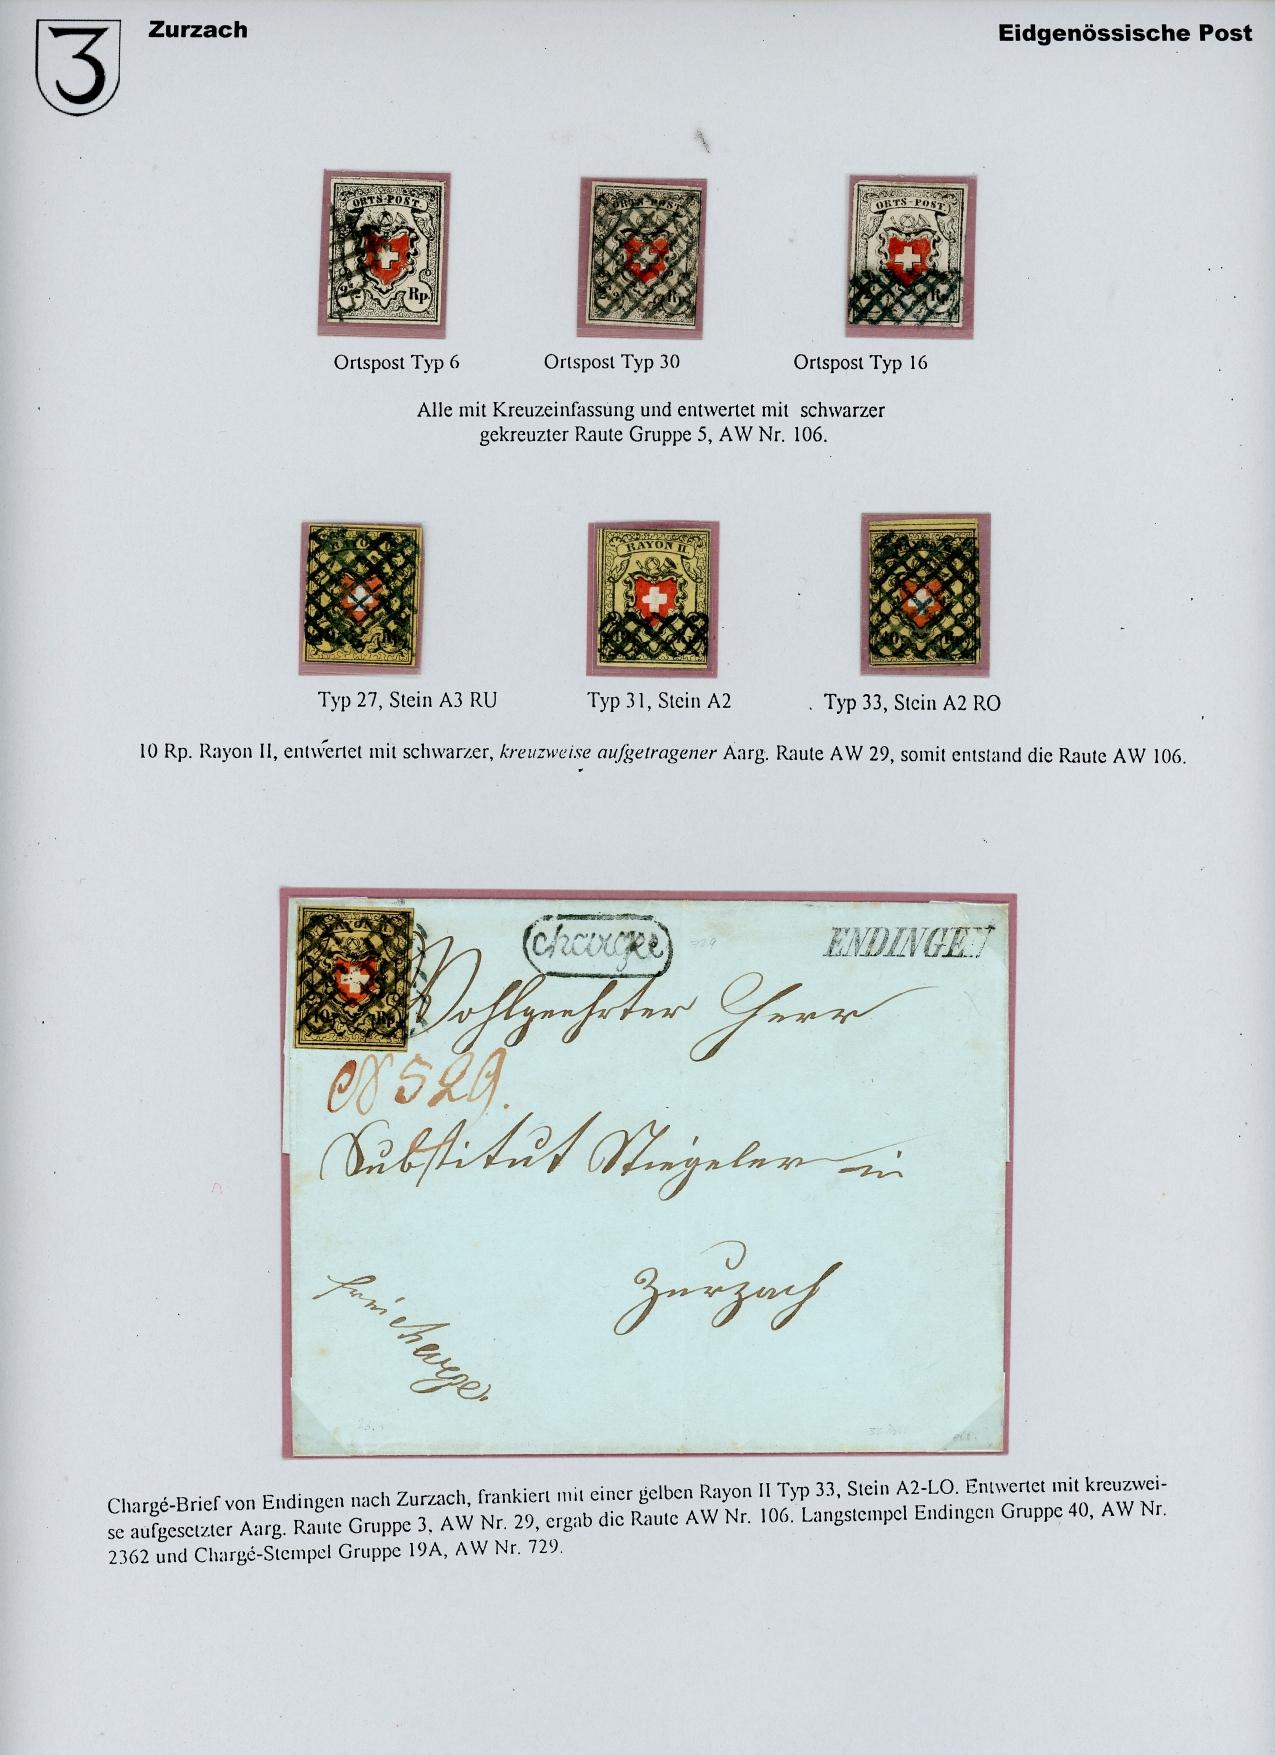 3
Zurzach
Eidgenössische Post
ORTS-POST.
2½
Rp.
ORTS-POST.
Rp.
ORTS-POST.
Rp.
Ortspost Typ 6
Ortspost Typ 30
Ortspost Typ 16
Alle mit Kreuzeinfassung und entwertet mit schwarzer
gekreuzter Raute Gruppe 5, AW Nr. 106.
RAYON II.
Typ 27, Stein A3 RU
Typ 31, Stein A2
Typ 33, Stein A2 RO
10 Rp. Rayon II, entwertet mit schwarzer, kreuzweise aufgetragener Aarg. Raute AW 29, somit entstand die Raute AW 106.
RAYON II.
10 Rp.
chargé
ENDINGEN
Wohlgeehrter Herr
N 529.
Substitut Stiegeler in
Zurzach
frei charge.
Chargé-Brief von Endingen nach Zurzach, frankiert mit einer gelben Rayon II Typ 33, Stein A2-LO. Entwertet mit kreuzwei-
se aufgesetzter Aarg. Raute Gruppe 3, AW Nr. 29, ergab die Raute AW Nr. 106. Langstempel Endingen Gruppe 40, AW Nr.
2362 und Chargé-Stempel Gruppe 19A, AW Nr. 729.